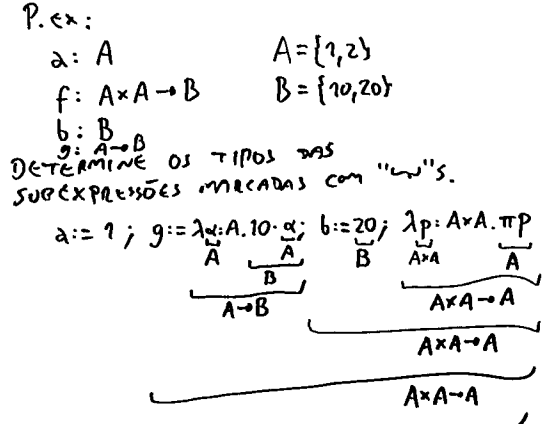 P. ex:
a: A A={1,2}
f: A×A→B B={10,20}
b: B
g: A→B
DETERMINE OS TIPOS DAS
SUBEXPRESSÕES MARCADAS COM "⏟"S.
a:=1; g:=λα:A.10·α; b:=20; λp:A×A.πp
A A B A×A A
B
A→B A×A→A
A×A→A
A×A→A